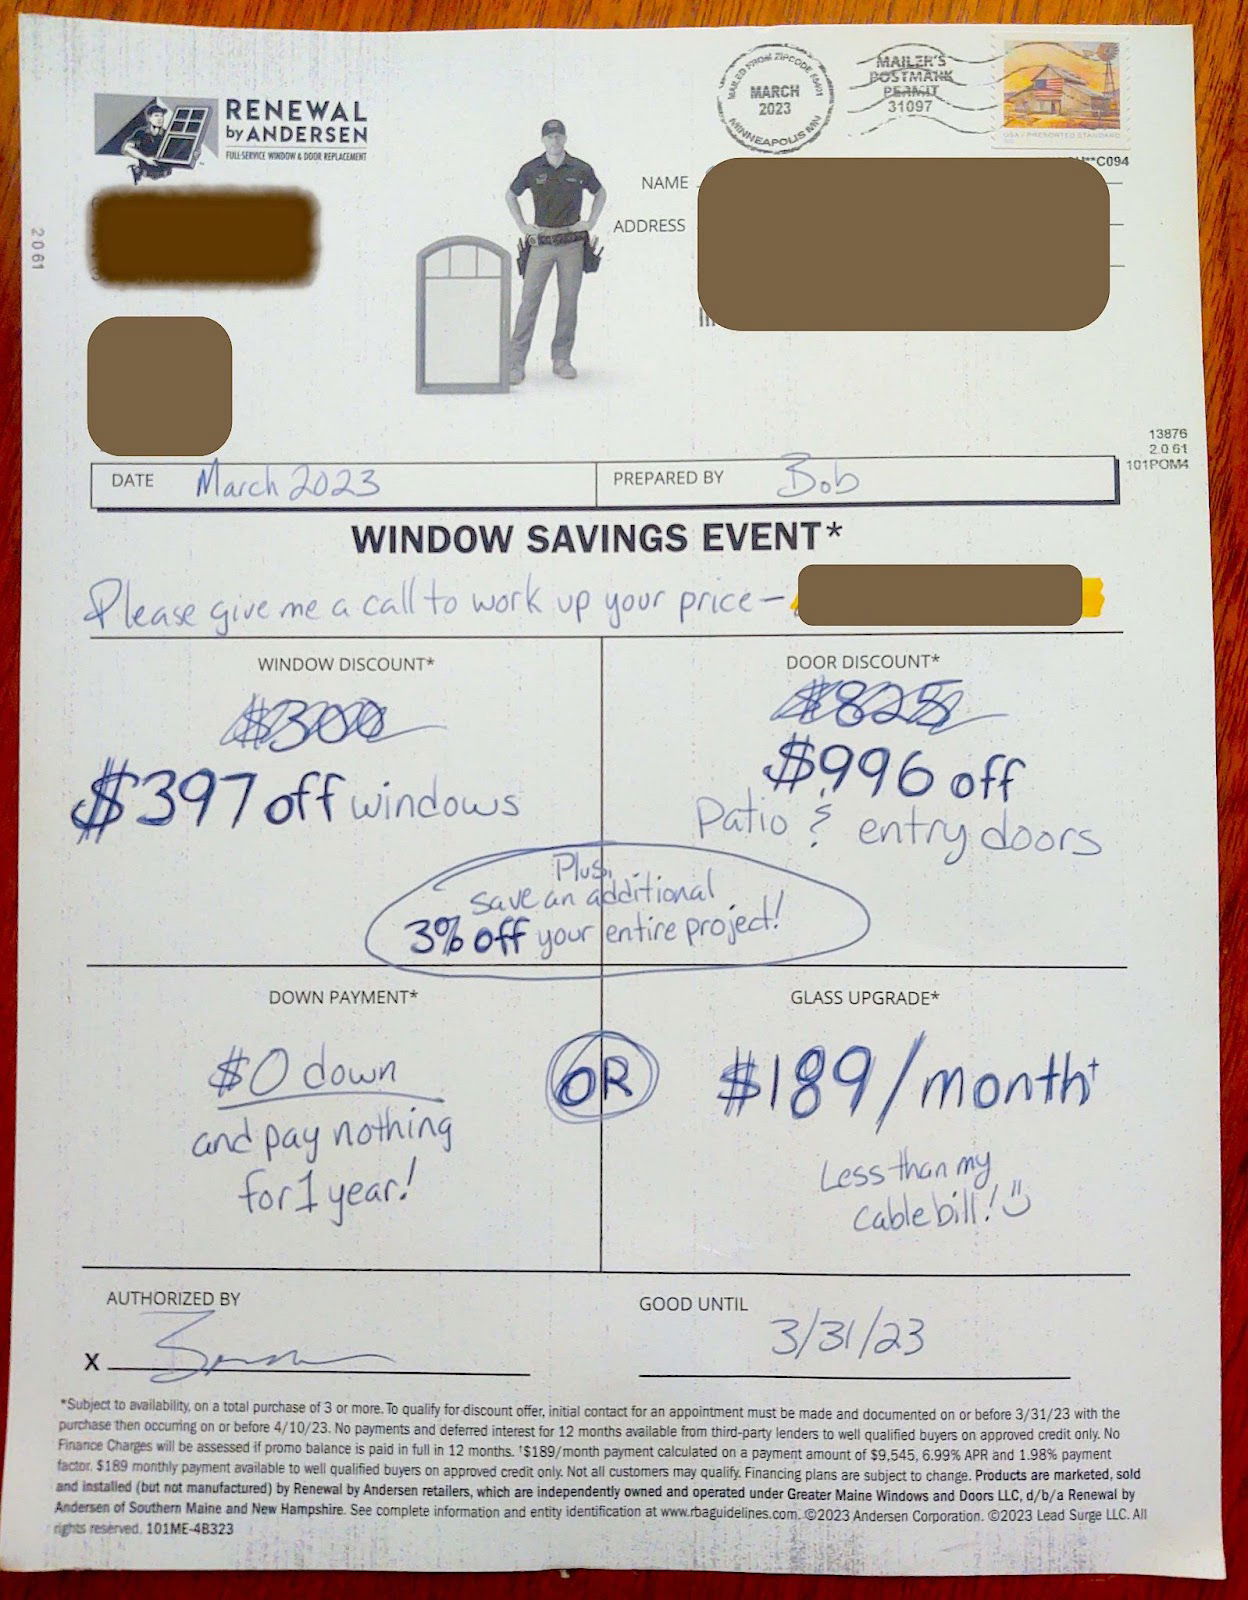 RENEWAL
by ANDERSEN
FULL-SERVICE WINDOW & DOOR REPLACEMENT
MAILED FROM ZIPCODE
MARCH
2023
MINNEAPOLIS MN
MAILER'S
POSTMARK
PERMIT
31097
USA / PRESORTED STANDARD
**C094
NAME
ADDRESS
2061
13876
2.0 61
101POM4
DATE March 2023 PREPARED BY Bob
WINDOW SAVINGS EVENT*
Please give me a call to work up your price-
WINDOW DISCOUNT*
$300
$397 off windows
DOOR DISCOUNT*
$825
$996 off
Patio & entry doors
Plus,
save an additional
3% off your entire project!
DOWN PAYMENT*
$0 down
and pay nothing
for 1 year!
OR
GLASS UPGRADE*
$189/month†
Less than my
cable bill!
AUTHORIZED BY
X
GOOD UNTIL
3/31/23
*Subject to availability, on a total purchase of 3 or more. To qualify for discount offer, initial contact for an appointment must be made and documented on or before 3/31/23 with the
purchase then occurring on or before 4/10/23. No payments and deferred interest for 12 months available from third-party lenders to well qualified buyers on approved credit only. No
Finance Charges will be assessed if promo balance is paid in full in 12 months. †$189/month payment calculated on a payment amount of $9,545, 6.99% APR and 1.98% payment
factor. $189 monthly payment available to well qualified buyers on approved credit only. Not all customers may qualify. Financing plans are subject to change. Products are marketed, sold
and installed (but not manufactured) by Renewal by Andersen retailers, which are independently owned and operated under Greater Maine Windows and Doors LLC, d/b/a Renewal by
Andersen of Southern Maine and New Hampshire. See complete information and entity identification at www.rbaguidelines.com. ©2023 Andersen Corporation. ©2023 Lead Surge LLC. All
rights reserved. 101ME-4B323